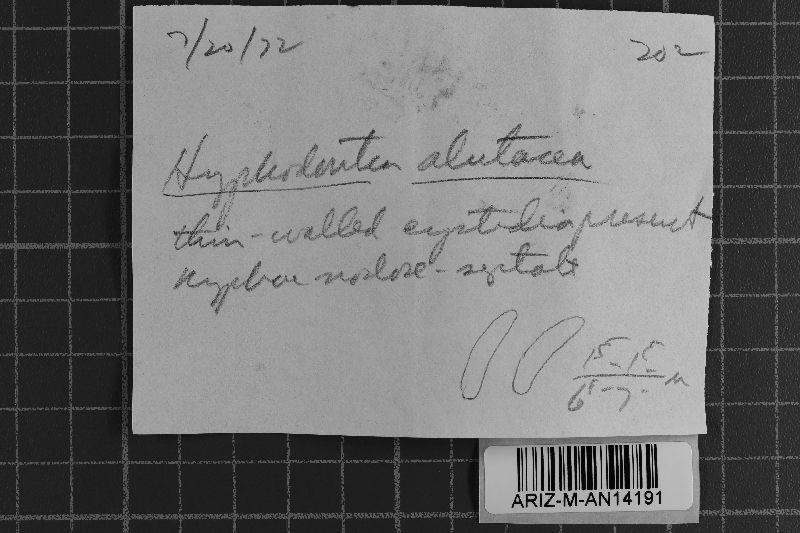 7/20/72 202
Hyphodontia alutacea
thin-walled cystidia present
hyphae nodose-septate
15-15
6-7 µ
ARIZ-M-AN14191